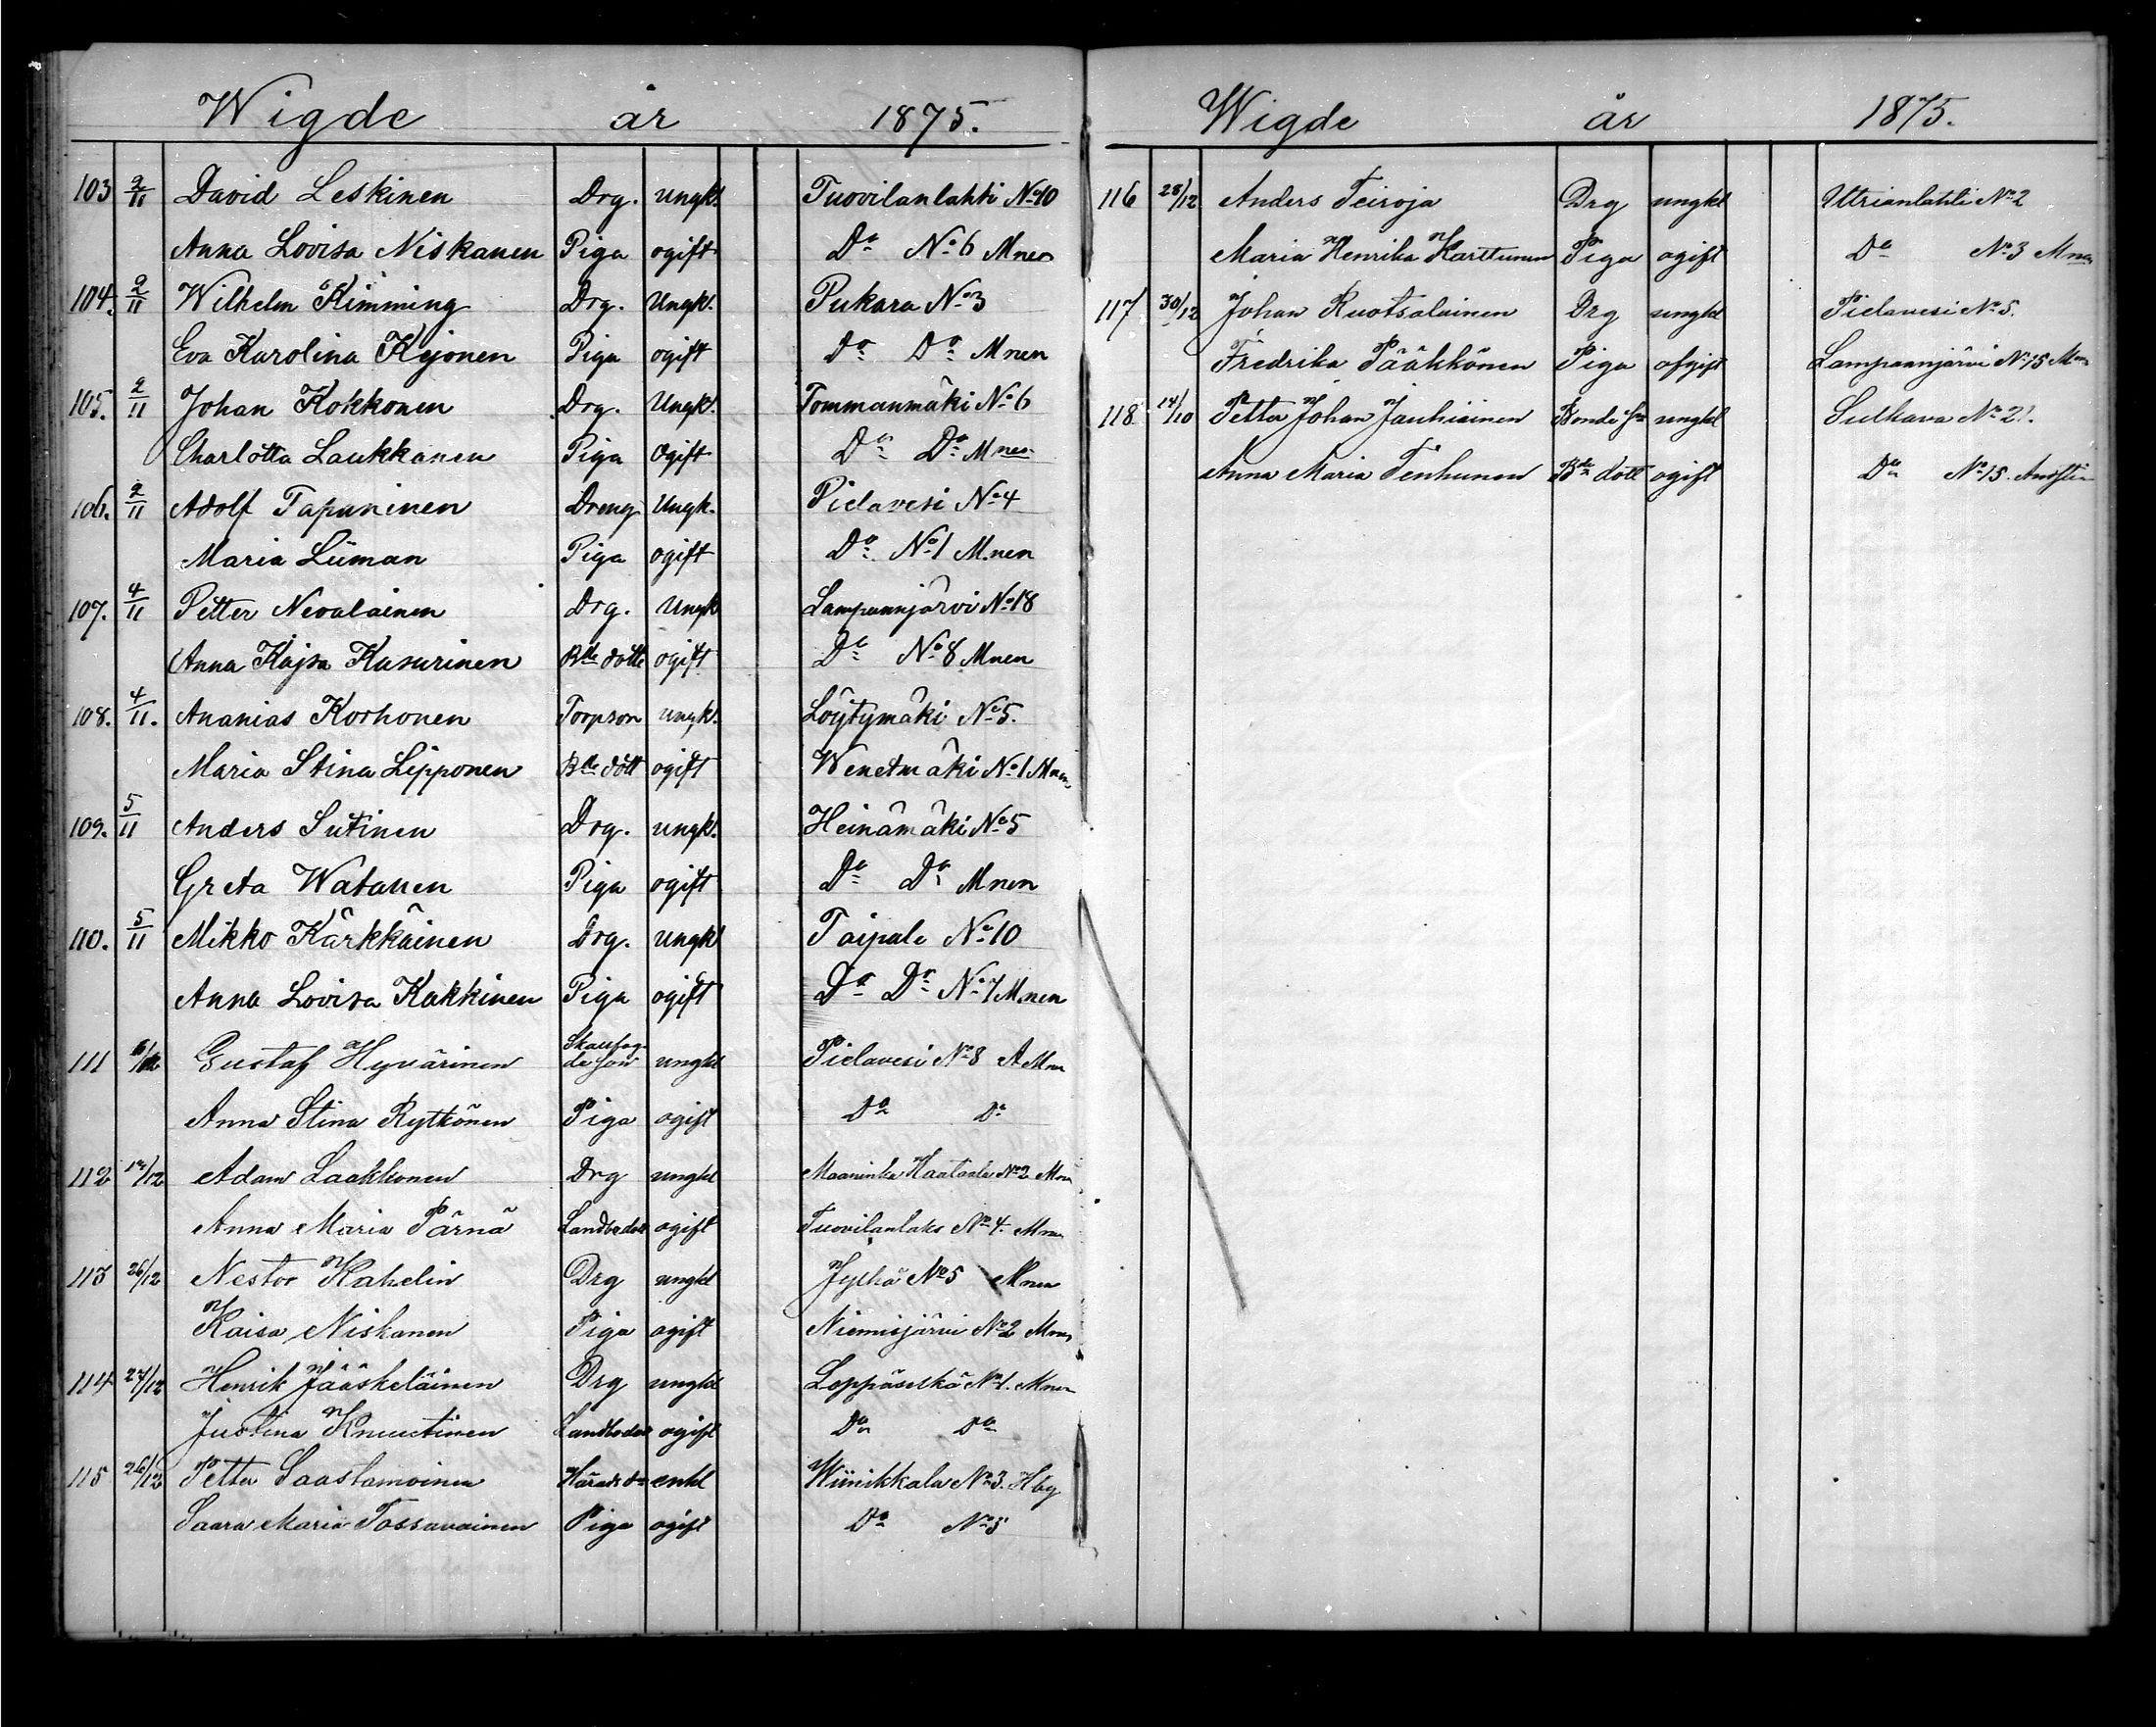 Wigde år 1875.
103 2/11 David Leskinen Drg. ungk. Tuovilanlahti No 10
Anna Lovisa Niskanen Piga ogift Do No 6 Mnen
104. 2/11 Wilhelm Kimming Drg. Ungk. Pukara No 3
Eva Karolina Kejonen Piga ogift Do Do Mnen
105. 2/11 Johan Kokkonen Drg. Ungk. Tommanmäki No 6
Charlotta Laukkanen Piga Ogift Do Do Mnen
106. 2/11 Adolf Tapaninen Dreng Ungk. Pielavesi No 4
Maria Liiman Piga ogift Do No 1 Mnen
107. 4/11 Petter Nevalainen Drg. Ungk Lampaanjärvi No 18
Anna Kajsa Kasurinen ogift Do No 8 Mnen
108. 4/11. Ananias Korhonen Torpson ungk. Löytymäki No 5.
Maria Stina Lipponen ogift Wenetmäki No 1 Mnen
109. 5/11 Anders Sutinen Drg. ungk. Heinämäki No 5
Greta Watanen Piga ogift Do Do Mnen
110. 5/11 Mikko Kärkkäinen Drg. ungk Taipale No 10
Anna Lovisa Kakkinen Piga ogift Do Do No 7 Mnen
111 Gustaf Hyvärinen ungkl Pielavesi No 8 A Mnen
Anna Stina Rytkönen Piga ogift Do Do
112 Adam Laakkonen Drg ungkl Maaninka Haatala No 2 Mnen
Anna Maria Pärnä Landbodott ogift Tuovilanlaks No 4. Mnen
113 26/12 Nestor Kahelin Drg ungkl Jylhä No 5 Mnen
Kaisa Niskanen Piga ogift Niemisjärvi No 2 Mnen
114 27/12 Henrik Jääskeläinen Drg ungkl Leppäselkä No 1. Mnen
Justina Knuutinen Landbodott ogift Do Do
115 26/12 Petter Saastamoinen enkl Wiinikkala No 3. Hbg
Saara Maria Tossavainen Piga ogift Do No 5
Wigde år 1875.
116 28/12 Anders Teiroja Drg ungkl Utrianlahti No 2
Maria Henrika Karttunen Piga ogift Do No 3 Mnen
117 30/12 Johan Ruotsalainen Drg ungkl Pielavesi No 5.
Fredrika Pääkkönen Piga ofgift Lampaanjärvi No 15 Mnen
118 14/10 Petter Johan Jauhiainen Bonde son ungkl Sulkava No 21.
Anna Maria Tenhunen dott ogift Do No 15.